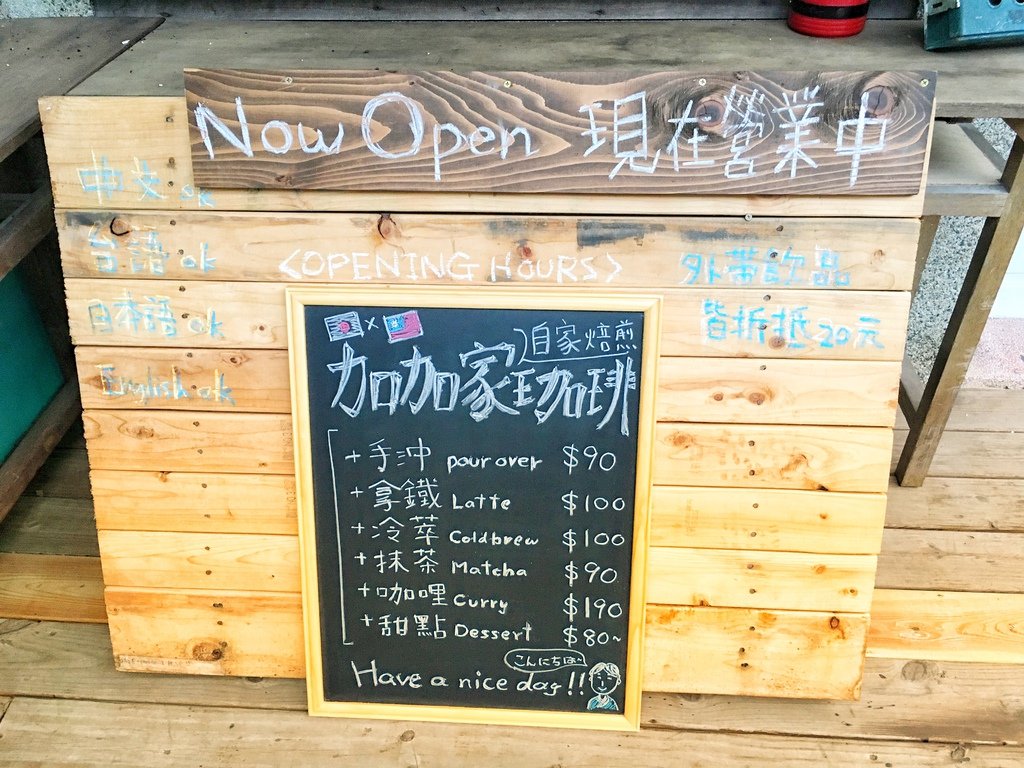 Now Open 現在營業中
中文 ok
台語 ok
日本語 ok
English ok
<OPENING HOURS>
外帶飲品
皆折抵20元
x
自家焙煎
加加家珈琲
+手沖 pour over $90
+拿鐵 Latte $100
+冷萃 Coldbrew $100
+抹茶 Matcha $90
+咖哩 Curry $190
+甜點 Dessert $80~
こんにちは
Have a nice day!!